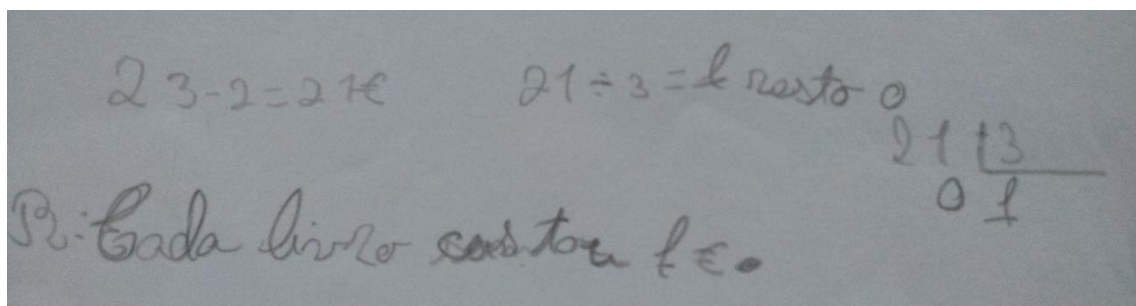 23-2=21€ 21÷3=7 resto 0
21 | 3
0 7
R: Cada livro custou 7€.